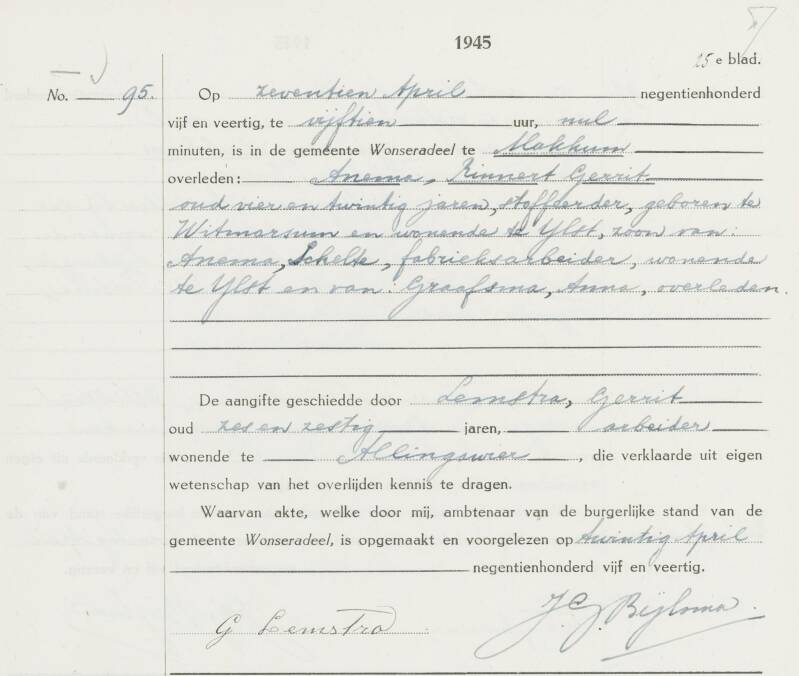 1945
15e blad.
No. 95.
Op zeventien April negentienhonderd
vijf en veertig, te vijftien uur, nul
minuten, is in de gemeente Wonseradeel te Makkum
overleden: Anema, Rinnert Gerrit
oud vier en twintig jaren, stoffeerder, geboren te
Witmarsum en wonende te Ylst, zoon van:
Anema, Schelte, fabrieksarbeider, wonende
te Ylst en van: Graafsma, Anna, overleden.
De aangifte geschiedde door Lemstra, Gerrit
oud zes en zestig jaren, arbeider
wonende te Allingawier, die verklaarde uit eigen
wetenschap van het overlijden kennis te dragen.
Waarvan akte, welke door mij, ambtenaar van de burgerlijke stand van de
gemeente Wonseradeel, is opgemaakt en voorgelezen op twintig April
negentienhonderd vijf en veertig.
G Lemstra
Bijlsma